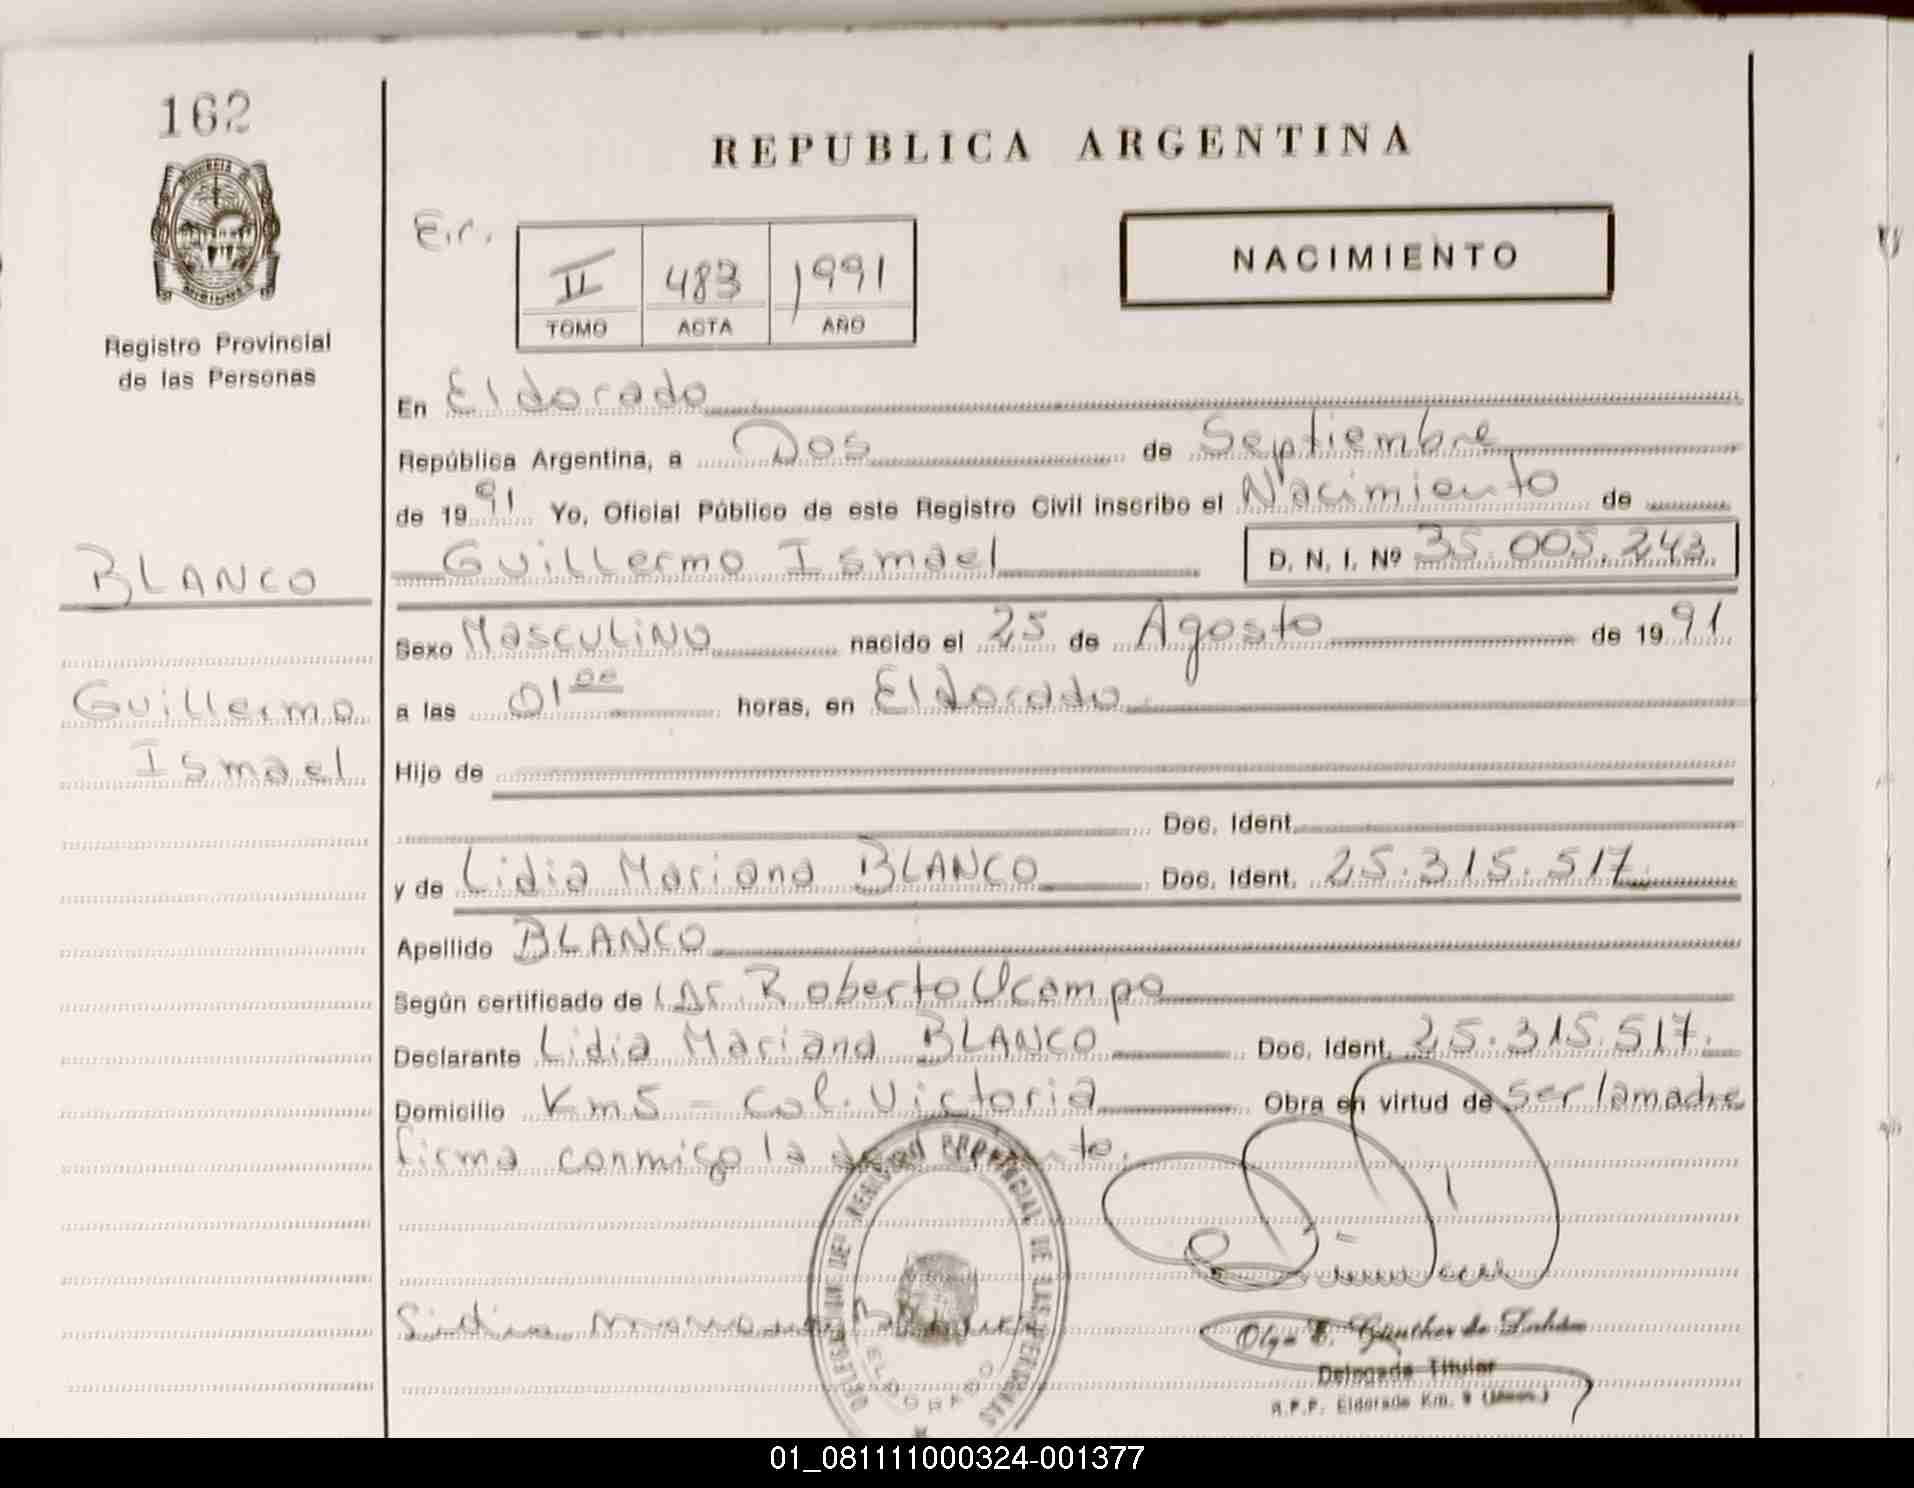 162
PROVINCIA DE
MISIONES
Registro Provincial
de las Personas
REPUBLICA ARGENTINA
E.r.
II 483 1991
TOMO ACTA AÑO
NACIMIENTO
En Eldorado
República Argentina, a Dos de Septiembre
de 1991 Yo, Oficial Público de este Registro Civil inscribo el Nacimiento de
Guillermo Ismael D. N. I. Nº 35.005.243
BLANCO
Sexo Masculino nacido el 25 de Agosto de 1991
Guillermo
a las 01 00 horas, en Eldorado
Ismael
Hijo de
Doc. Ident.
y de Lidia Mariana BLANCO Doc. Ident. 25.315.517
Apellido BLANCO
Según certificado de Dr. Roberto Ocampo
Declarante Lidia Mariana BLANCO Doc. Ident. 25.315.517.
Domicilio Km5 - Col. Victoria Obra en virtud de ser la madre
firma conmigo la
DE LAS PERSONAS
ELDORADO
Olga E. Günther de
Delegada Titular
R.P.P. Eldorado Km. 9 (Mnes.)
01_081111000324-001377